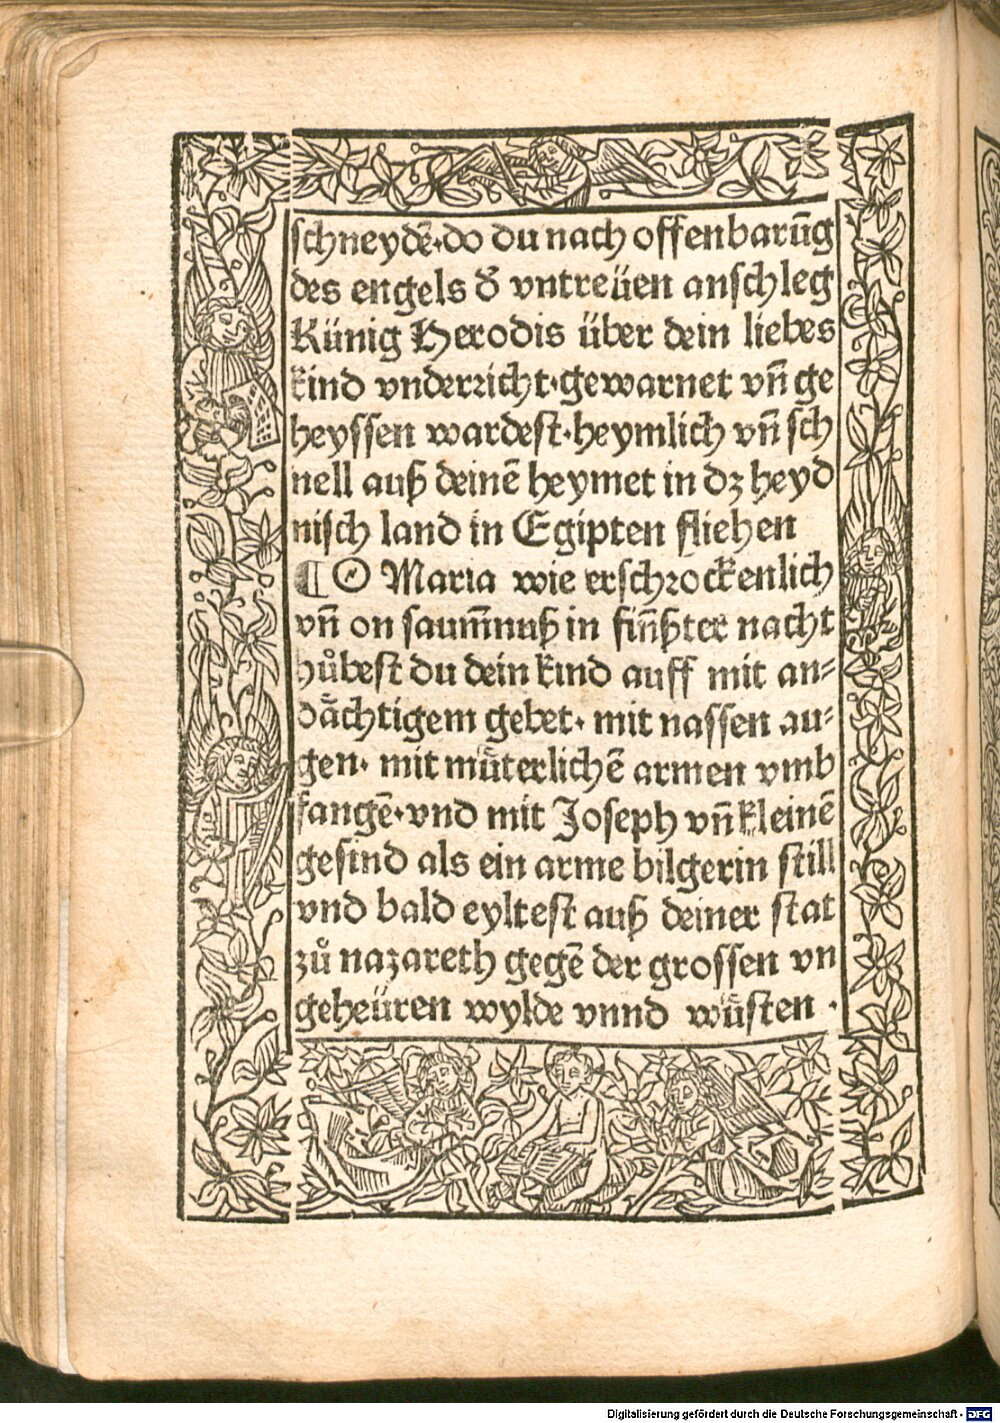 schneydē·do du nach offenbarūg
des engels d̕ vntreüen anschleg
Künig Herodis über dein liebes
kind vnderricht·gewarnet vn̄ ge
heyssen wardest·heymlich vn̄ sch
nell auß deinē heymet in dz heyd
nisch land in Egipten fliehen
¶ O Maria wie erschrockenlich
vn̄ on saum̄nuß in fin̄ßter nacht
hůbest du dein kind auff mit an⸗
dåchtigem gebet· mit nassen au⸗
gen· mit mu̎terlichē armen vmb
fangē·vnd mit Joseph vn̄ kleinē
gesind als ein arme bilgerin still
vnd bald eyltest auß deiner stat
zů nazareth gegē der grossen vn
geheüren wylde vnnd wu̎sten ·
Digitalisierung gefördert durch die Deutsche Forschungsgemeinschaft - DFG